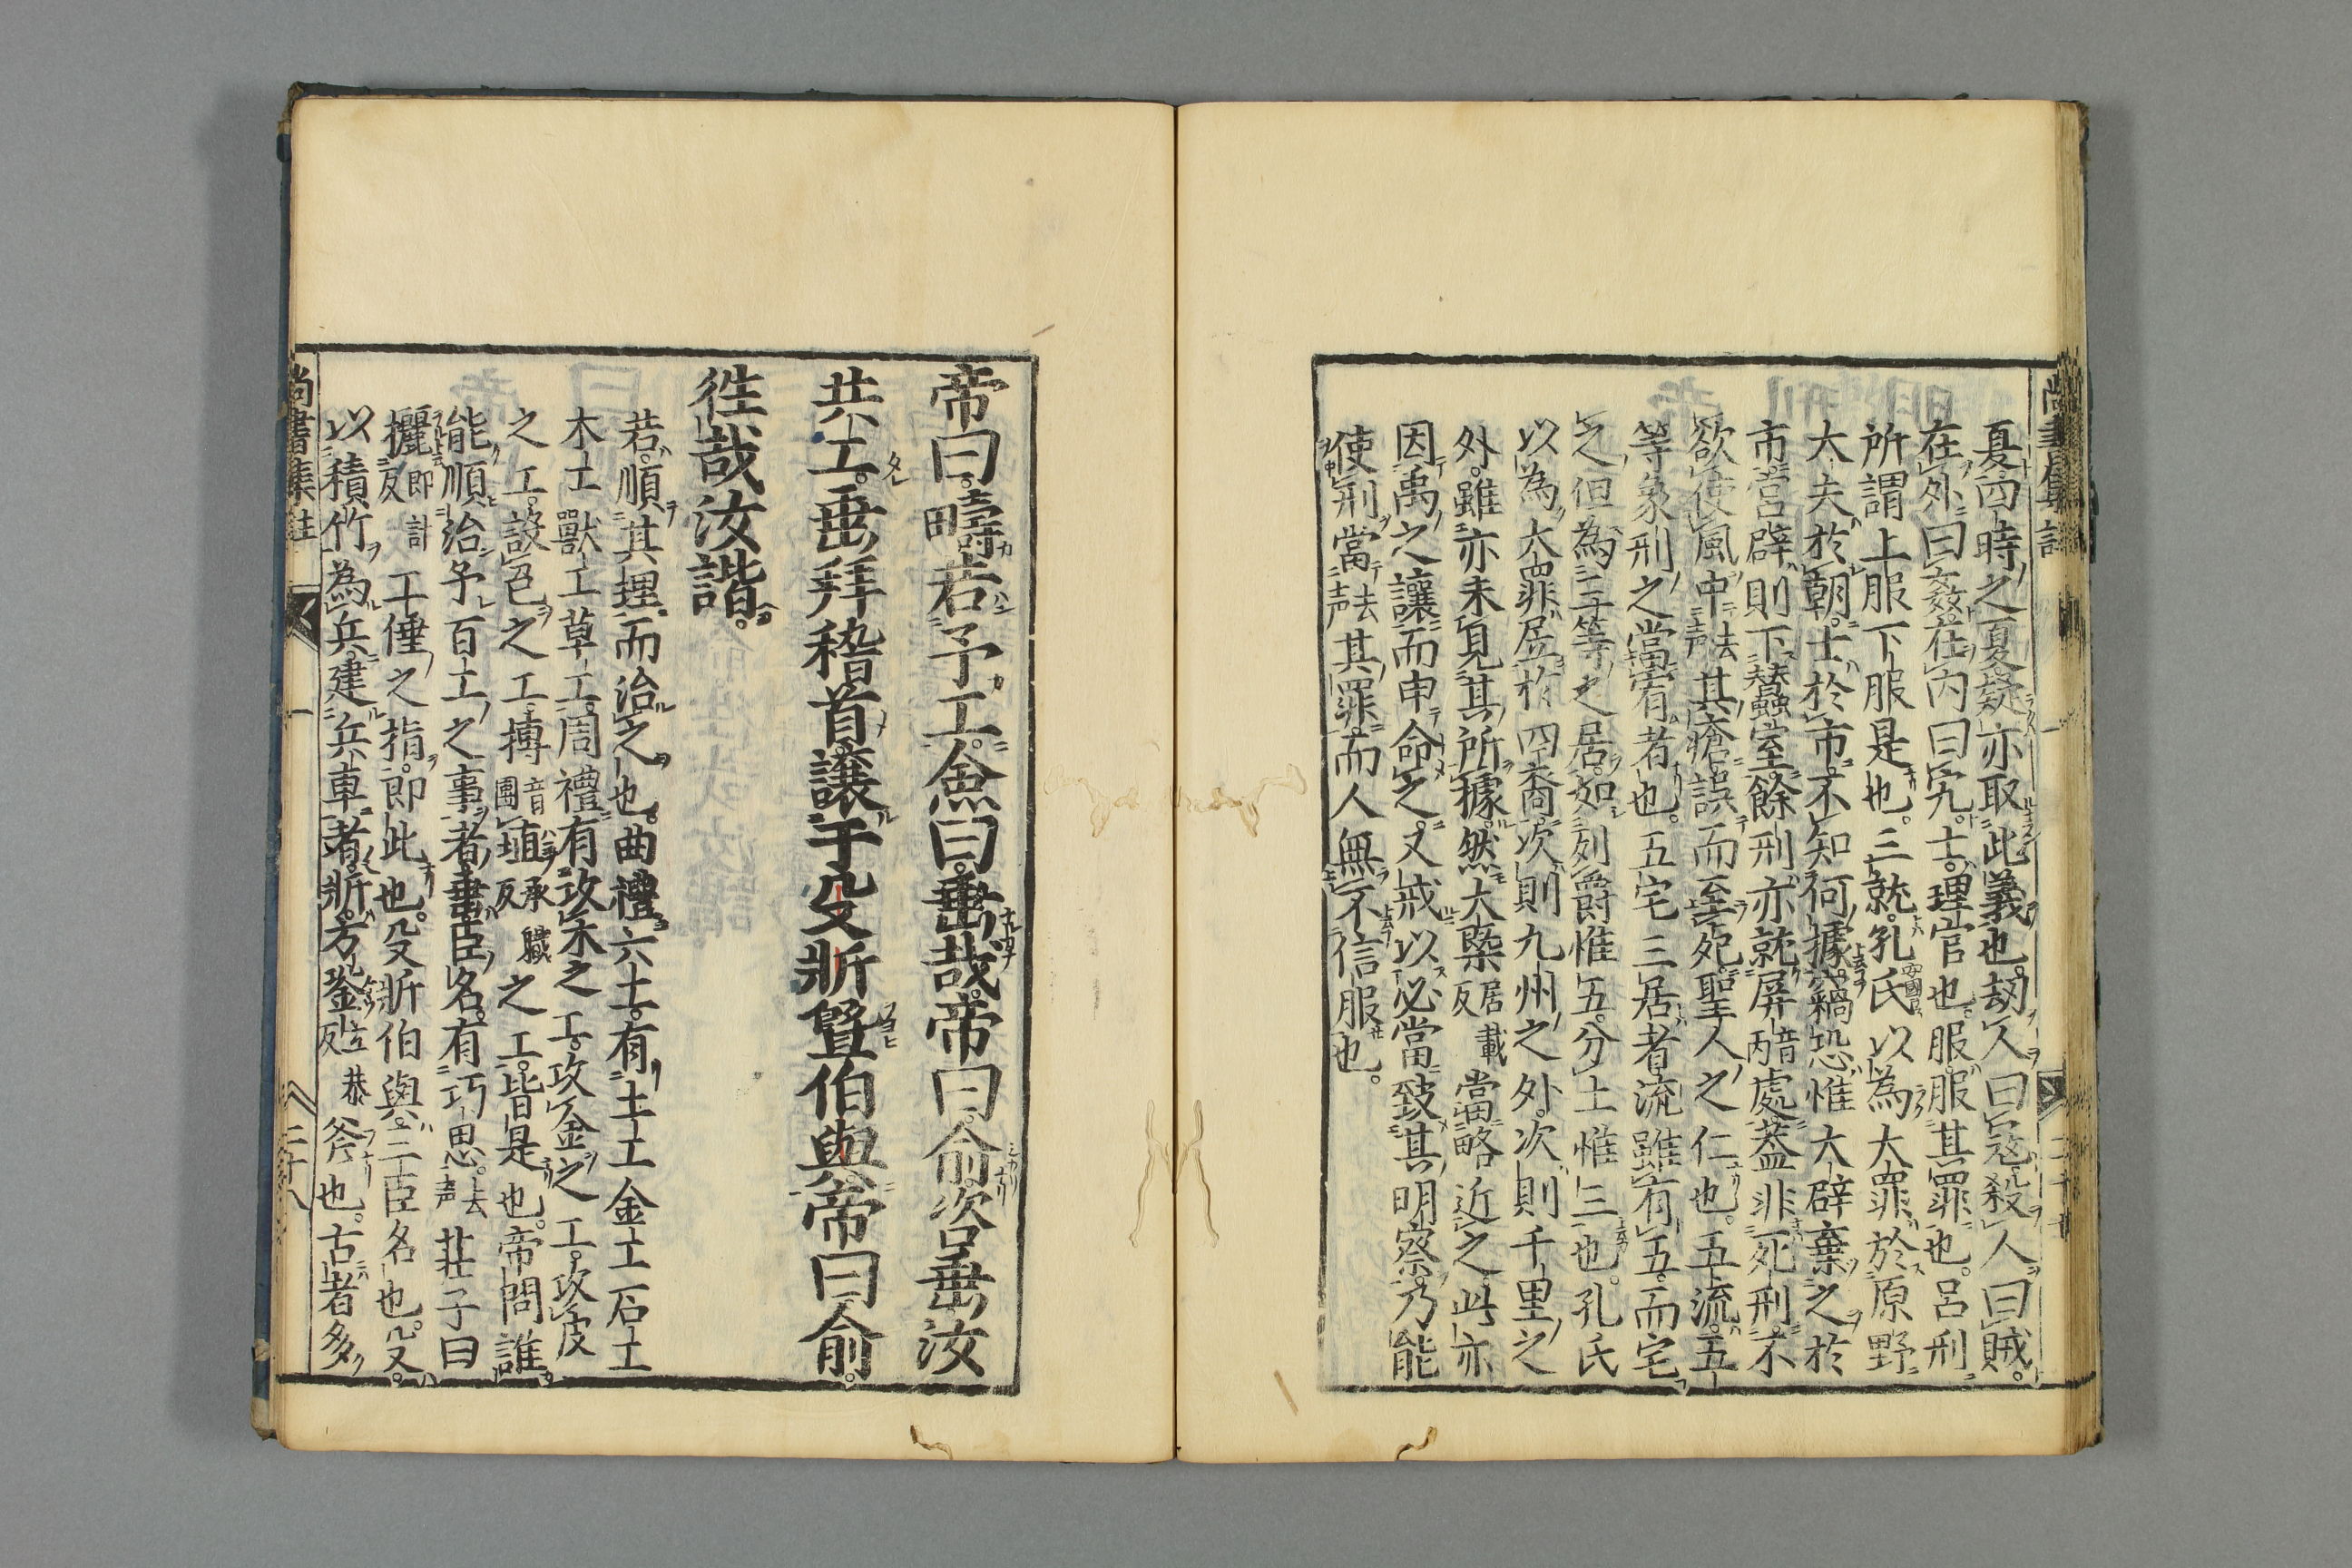 夏四時之夏疑亦取此義也劫人曰寇殺人曰賊
在外曰姦在内曰宄士理官也服服其罪也呂刑
所謂上服下服是也三就孔氏以為大罪於原野
大夫於朝士於市不知何據竊恐惟大辟棄之於
市宮辟則下蠶室餘刑亦就屏音丙處蓋非死刑不
欲使風中去声其瘡誤而至死聖人之仁也五流五
等象刑之當宥者也五宅三居者流雖有五而宅
之但為三等之居如列爵惟五分土惟三也孔氏
以為大罪居於四裔次則九州之外次則千里之
外雖亦未見其所據然大槩居載反當略近之此亦
因禹之讓而申命之又戒以必當致其明察乃能
使刑當去声其罪而人無不信服也
帝曰疇若予工僉曰垂哉帝曰俞咨垂汝
共工垂拜稽首讓于殳斨曁伯與帝曰俞
徃哉汝諧
若順其理而治之也曲禮六工有土工金工石工
木工獸工草工周禮有攻木之工攻金之工攻皮
之工設色之工摶音團埴承職反之工皆是也帝問誰
能順治予百工之事者垂臣名有巧思去声莊子曰
攦即計反工倕之指即此也殳斨伯與三臣名也殳
以積竹為兵建兵車者斨方銎丘恭反斧也古者多
尚書集註
二十八